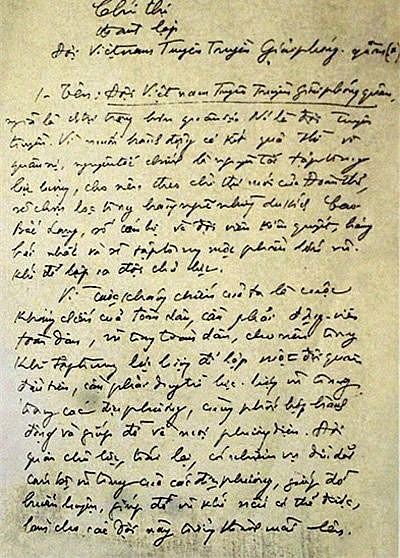 Chỉ thị
thành lập
Đội Việt nam Tuyên Truyền Giải phóng quân (*)
1- Tên: Đội Việt nam Tuyên Truyền Giải phóng quân,
nghĩa là chính trị trọng hơn quân sự. Nó là đội tuyên
truyền. Vì muốn hành động có kết quả thì về
quân sự, nguyên tắc chính là nguyên tắc tập trung
lực lượng, cho nên theo chỉ thị mới của Đoàn thể,
sẽ chọn lọc trong hàng ngũ những du kích Cao
Bắc Lạng, số cán bộ và đội viên kiên quyết, hăng
hái nhất và sẽ tập trung một phần lớn vũ
khí để lập ra đội chủ lực.
Vì cuộc kháng chiến của ta là cuộc
kháng chiến của toàn dân, cần phải động viên
toàn dân, vũ trang toàn dân, cho nên trong
khi tập trung lực lượng để lập một đội quân
đầu tiên, cần phải duy trì lực lượng vũ trang
trong các địa phương, cùng phối hợp hành
động và giúp đỡ về mọi phương diện. Đội
quân chủ lực, trái lại, có nhiệm vụ dìu dắt
cán bộ vũ trang của các địa phương, giúp đỡ
huấn luyện, giúp đỡ vũ khí nếu có thể được,
làm cho các đội này trưởng thành mãi lên.